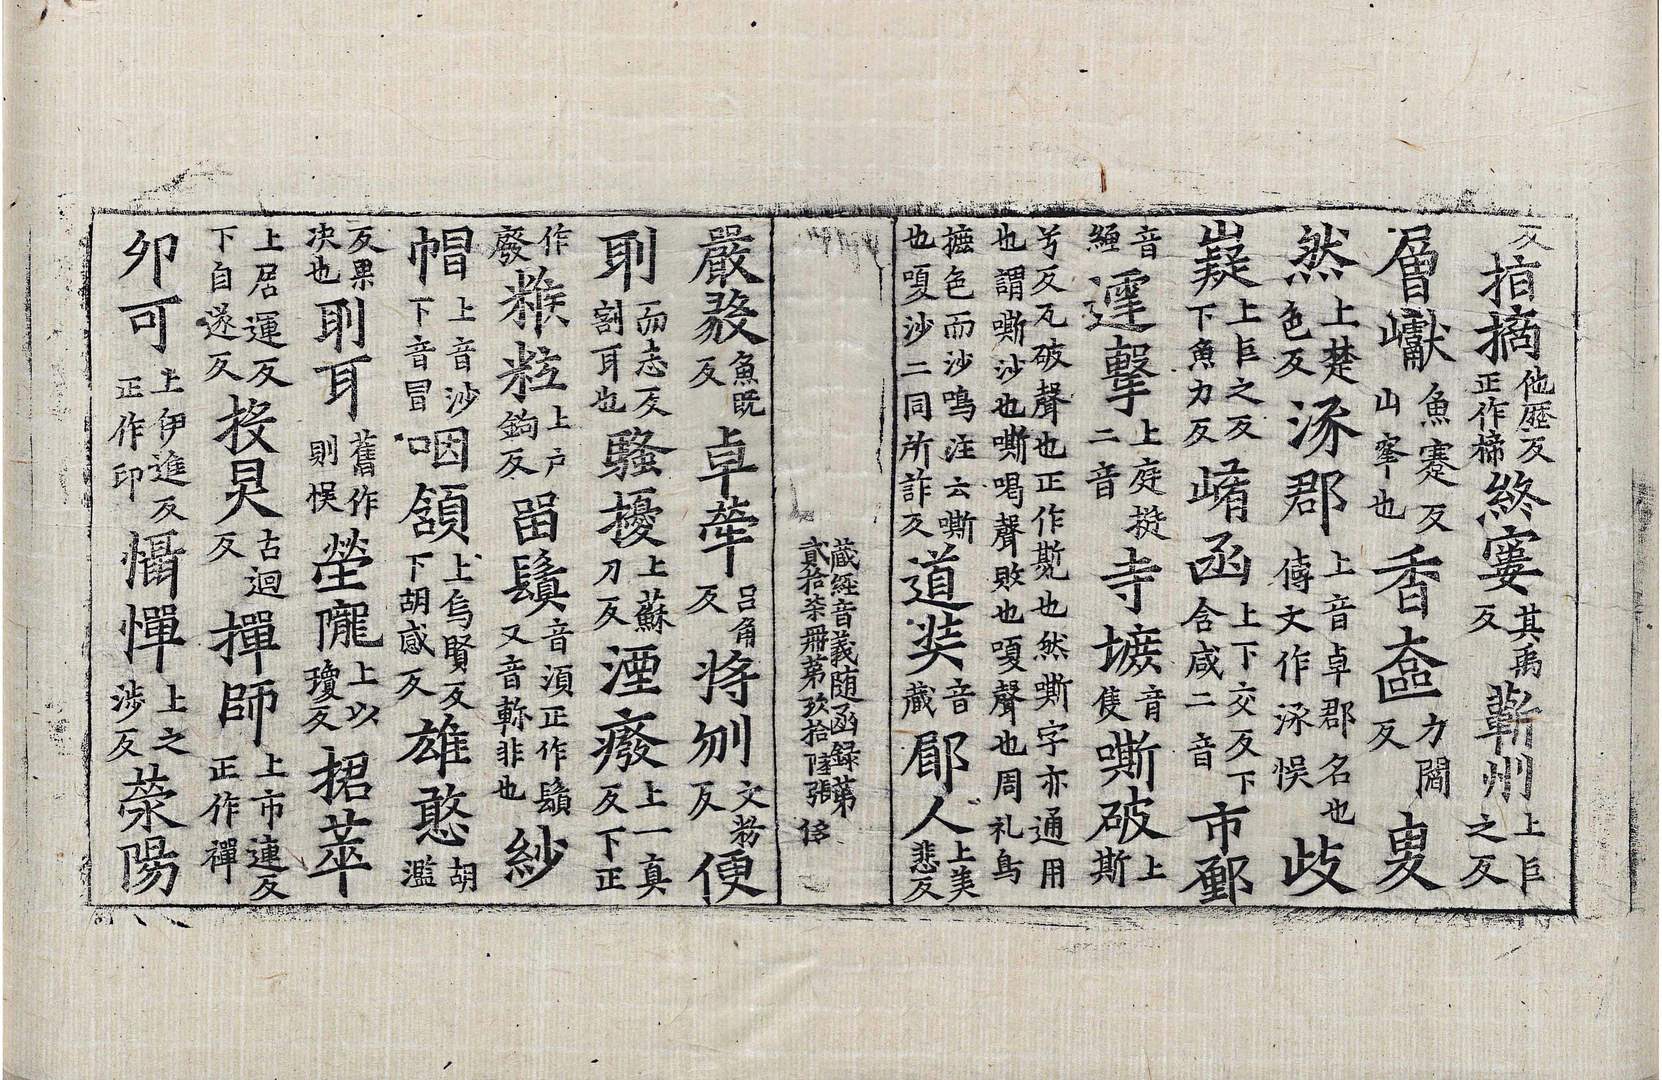 反指摘他歴反正作楴終窶其禹反蘄州上巨之反
層巘魚蹇反山峯也香奩力閻反叟
然上楚色反涿郡上音卓郡名也傳文作涿悮歧
嶷上巨之反下魚力反崤函上下交反下含咸二音市鄽
音纏邅擊上庭挺二音寺墌音隻嘶破上斯
兮反瓦破聲也正作㽄也然嘶字亦通用
也謂嘶沙也嘶喝聲敗也嗄聲也周礼鳥
㩋色而沙鳴注云嘶也嗄沙二同所詐反道奘音藏郿人上美悲反
藏經音義随函録第
貳拾柒冊第玖拾陸張 侈
嚴毅魚既反卓犖呂角反將刎文粉反便
刵而志反割耳也騷擾上蘇刀反湮廢上一真反下正
作廢糇粒上戶鉤反留鬚音湏正作鬚又音軬非也紗
帽上音沙下音冒咽頷上烏賢反下胡感反雄憨胡濫
反果決也刵耳舊作則悮塋隴上以瓊反捃萃
上居運反下自遂反 炅古迥反揮師上市連反正作禪
卯可上伊進反正作印懾憚上之涉反荥陽